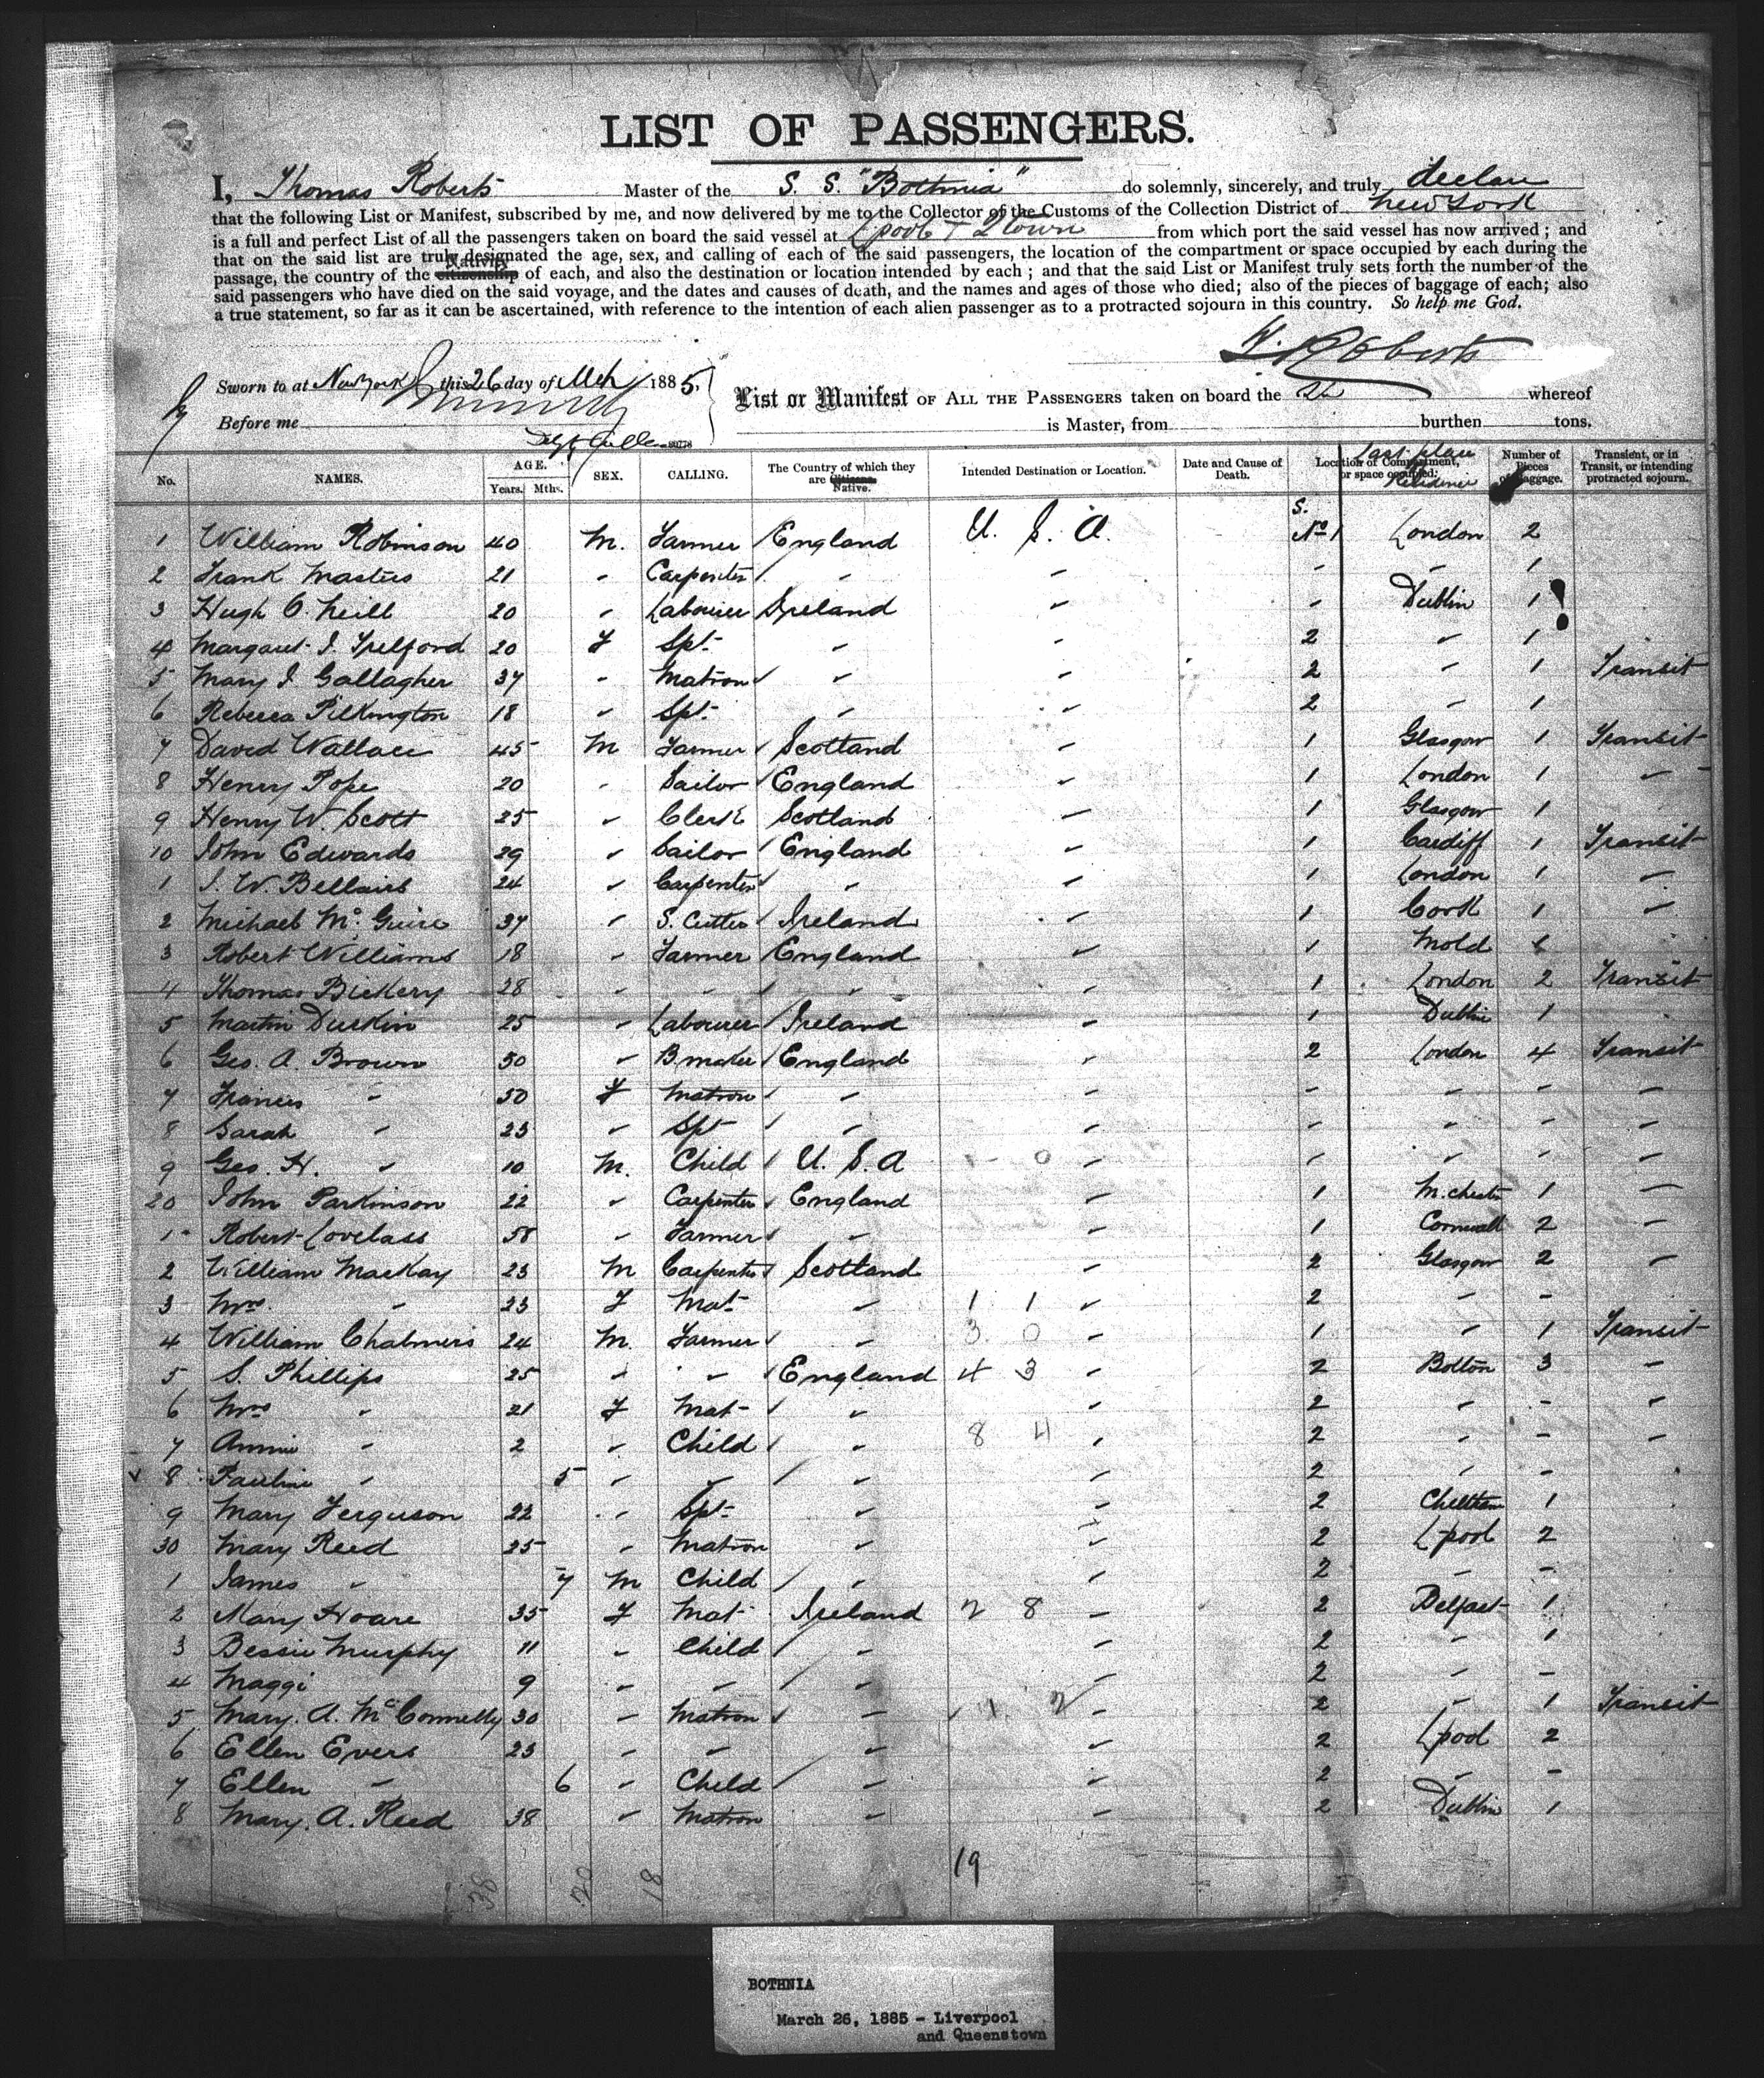 LIST OF PASSENGERS.
I, Thomas Roberts Master of the S. S. "Bothnia" do solemnly, sincerely, and truly declare
that the following List or Manifest, subscribed by me, and now delivered by me to the Collector of the Customs of the Collection District of New York
is a full and perfect List of all the passengers taken on board the said vessel at Lpool + Qtown from which port the said vessel has now arrived; and
that on the said list are truly designated the age, sex, and calling of each of the said passengers, the location of the compartment or space occupied by each during the
passage, the country of the citizenship Nativity of each, and also the destination or location intended by each; and that the said List or Manifest truly sets forth the number of the
said passengers who have died on the said voyage, and the dates and causes of death, and the names and ages of those who died; also of the pieces of baggage of each; also
a true statement, so far as it can be ascertained, with reference to the intention of each alien passenger as to a protracted sojourn in this country. So help me God.
Roberts
Sworn to at New York this 26 day of Mch 1885,
List or Manifest OF ALL THE PASSENGERS taken on board the whereof
Before me
is Master, from burthen tons.
No. NAMES. AGE. Years. Mths. SEX. CALLING. The Country of which they are Citizens. Native. Intended Destination or Location. Date and Cause of Death. Location of Compartment, or space occupied. Last place Residence Number of Pieces of Baggage. Transient, or in Transit, or intending protracted sojourn.
1 William Robinson 40 M. Farmer England U. S. A. S. No 1 London 2
2 Frank Masters 21 " Carpenter " " " " 1
3 Hugh O. Neill 20 " Labourer Ireland " " Dublin 1
4 Margaret J. Telford 20 F Spt. " " 2 " 1
5 Mary J. Gallagher 37 " Matron " " 2 " 1 Transit
6 Rebecca Pilkington 18 " Spt. " " 2 " 1
7 David Wallace 45 M Farmer Scotland " 1 Glasgow 1 Transit
8 Henry Pope 20 " Sailor England " 1 London 1 "
9 Henry W. Scott 25 " Clerk Scotland " 1 Glasgow 1
10 John Edwards 29 " Sailor England " 1 Cardiff 1 Transit
1 J. W. Bellairs 24 " Carpenter " " 1 London 1 "
2 Michael Mc Guire 37 " S. Cutter Ireland " 1 Cork 1 "
3 Robert Williams 18 " Farmer England " 1 Mold 1
4 Thomas Bickery 28 " " " 1 London 2 Transit
5 Martin Durkin 25 " Labourer Ireland " 1 Dublin 1
6 Geo. A. Brown 50 " B. maker England " 2 London 4 Transit
7 Frances " 50 F Matron " " " " " "
8 Sarah " 23 " Spt " " " " " "
9 Geo. H. " 10 M. Child U. S. A " " " " "
20 John Parkinson 22 " Carpenter England " 1 M. chester 1 "
1 Robert Lovelass 58 " Farmer " " 1 Cornwall 2 "
2 William MacKay 23 M Carpenter Scotland " 2 Glasgow 2 "
3 Mrs. " 23 F Mat " 1 1 " 2 " "
4 William Chalmers 24 M. Farmer " 3 0 " 1 " 1 Transit
5 S. Phillips 25 " " England 4 3 " 2 Bolton 3 "
6 Mrs " 21 F Mat " " 2 " " "
7 Annie " 2 " Child " 8 4 " 2 " " "
8 Pauline " 5 " " " " 2 " "
9 Mary Ferguson 22 " Spt. " " 2 1
30 Mary Reed 25 " Matron " " 2 Lpool 2
1 James " 7 M Child " " 2 " "
2 Mary Hoare 35 F Mat Ireland 2 8 " 2 Belfast 1
3 Bessie Murphy 11 " Child " " 2 " 1
4 Maggi 9 " " " " 2 " "
5 Mary. A. McConnelly 30 " Matron " " 2 " 1 Transit
6 Ellen Evers 23 " " " " 2 Lpool 2
7 Ellen " 6 " Child " " 2 " "
8 Mary. A. Reed 38 " Matron " " 2 Dublin 1
38 20 18 19
BOTHNIA
March 26, 1885 - Liverpool
and Queenstown